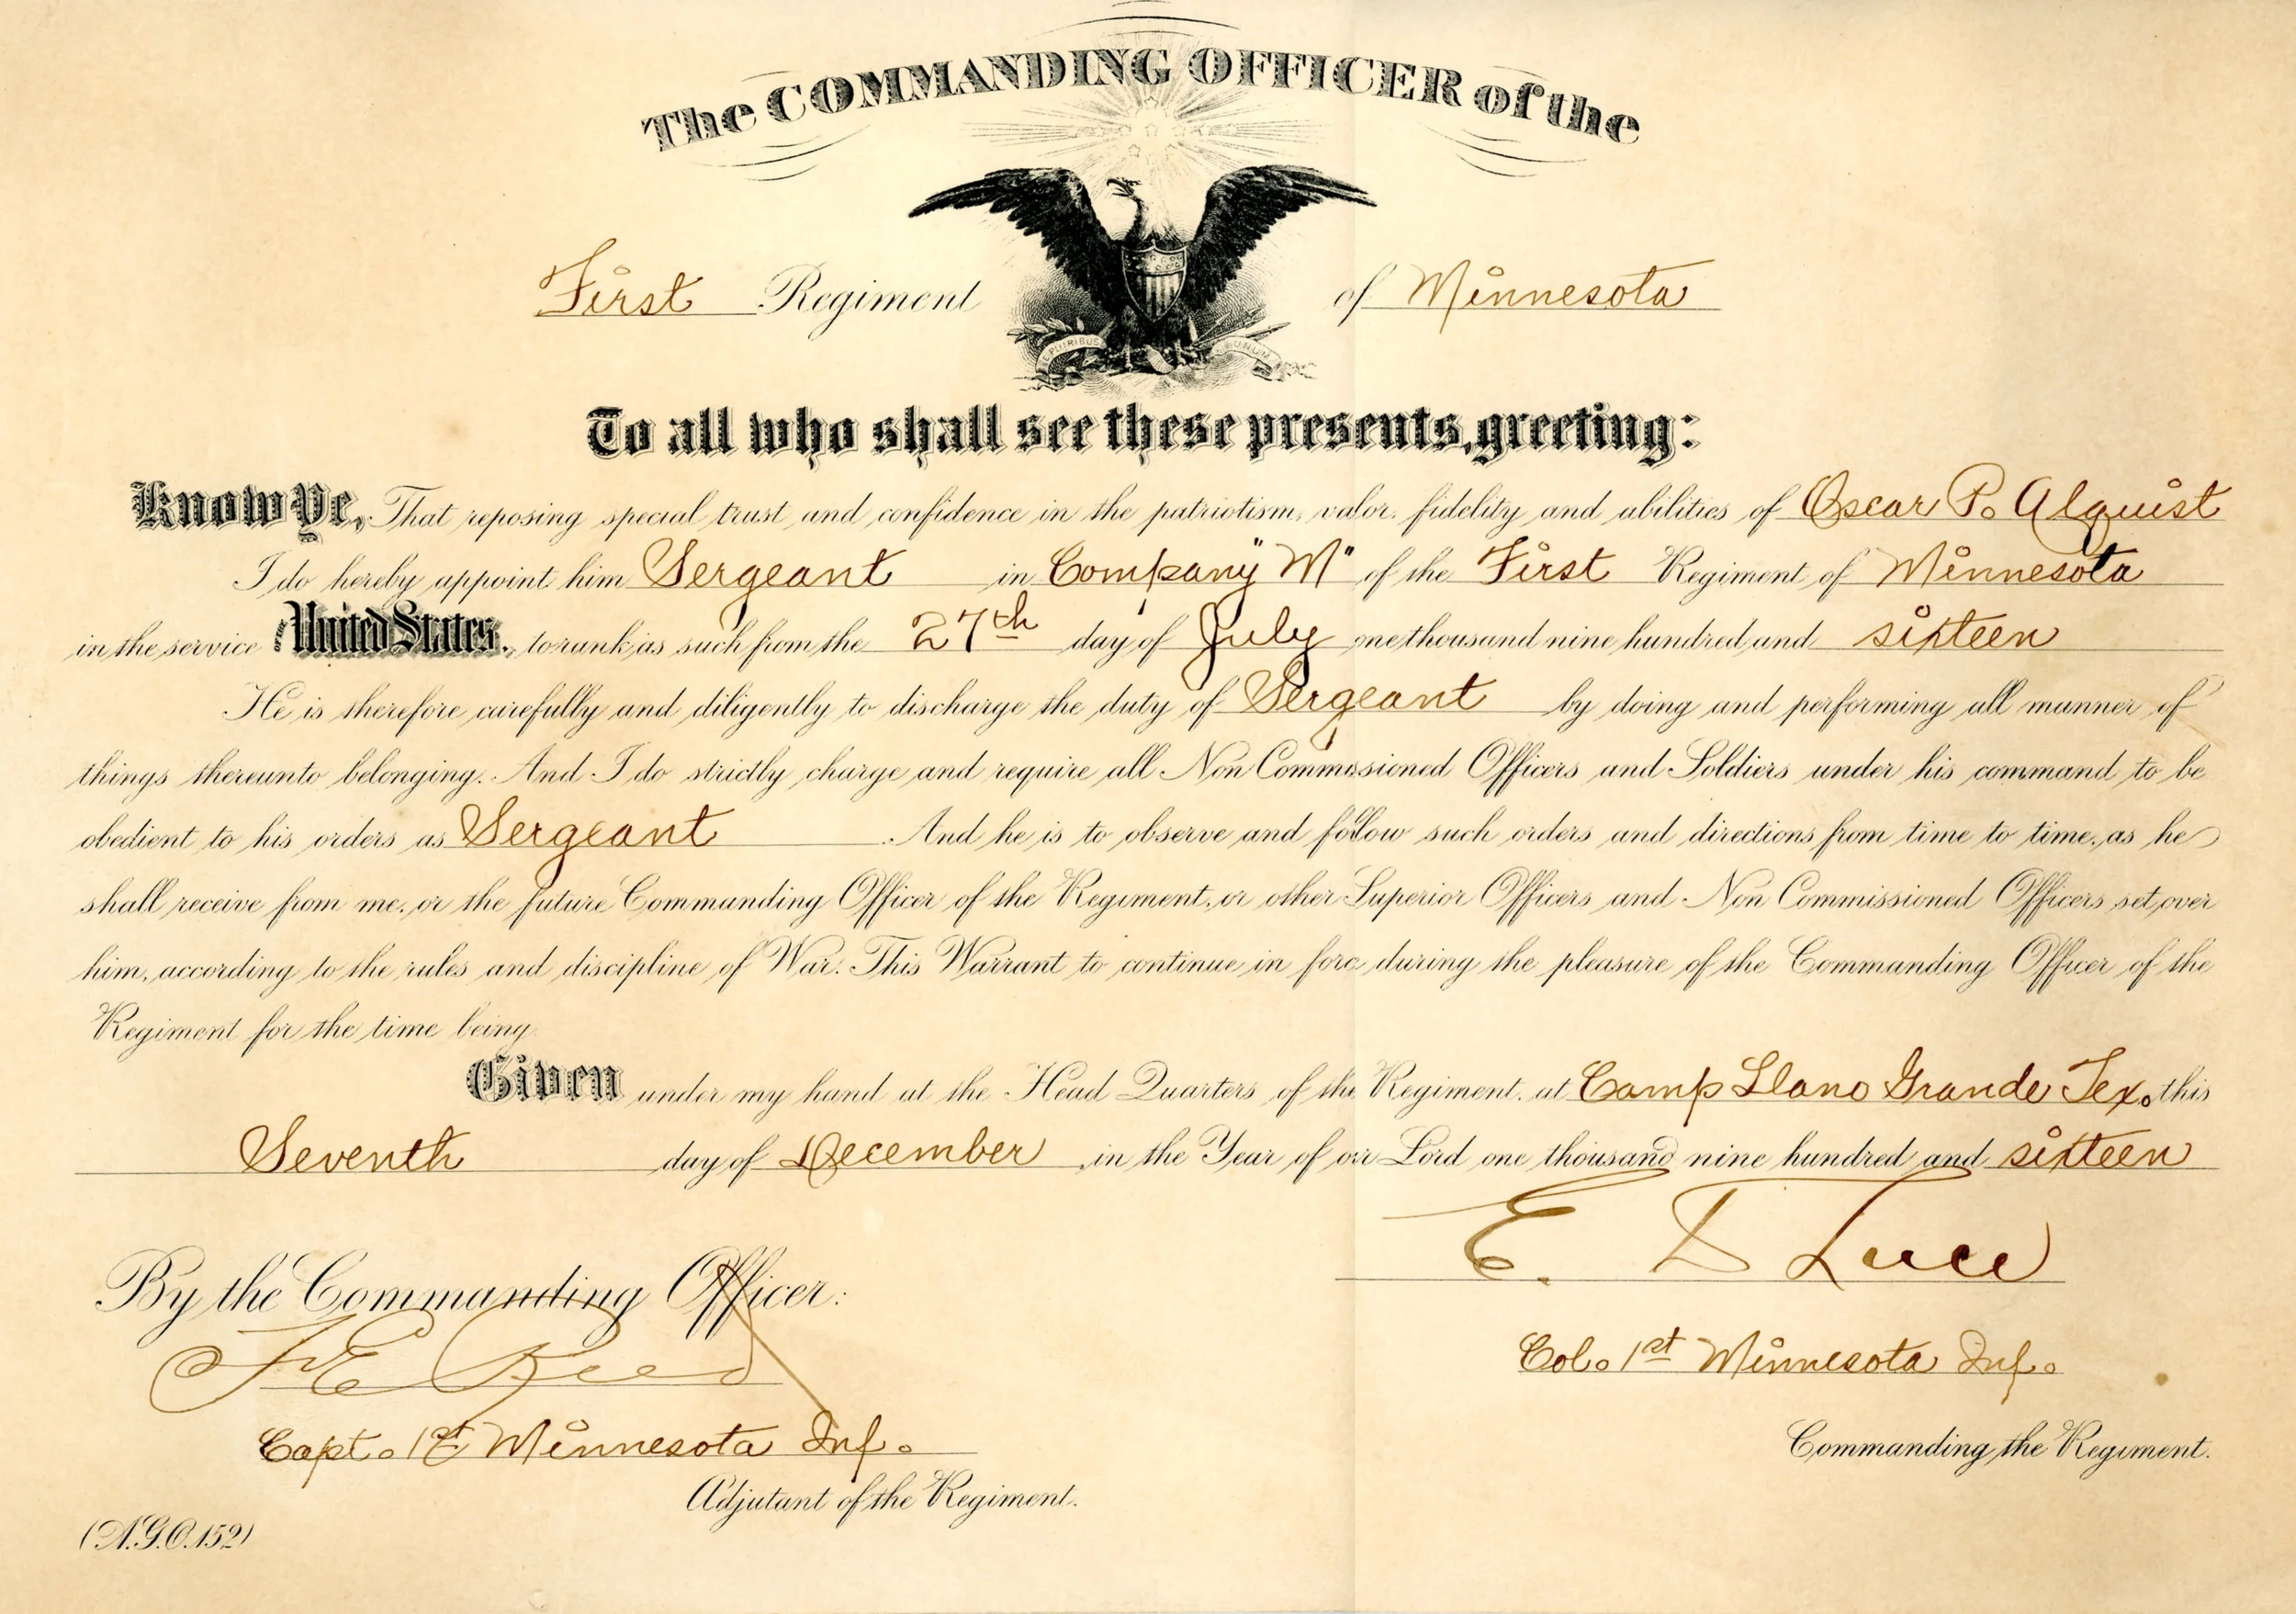 The COMMANDING OFFICER of the
First Regiment of Minnesota
E PLURIBUS UNUM
To all who shall see these presents, greeting:
Know Ye, That reposing special trust and confidence in the patriotism, valor, fidelity and abilities of Oscar P. Alquist
I do hereby appoint him Sergeant in Company "M" of the First Regiment of Minnesota
in the service of the United States, to rank as such from the 27th day of July one thousand nine hundred and sixteen
He is therefore carefully and diligently to discharge the duty of Sergeant by doing and performing all manner of
things thereunto belonging. And I do strictly charge and require all Non Commissioned Officers and Soldiers under his command to be
obedient to his orders as Sergeant. And he is to observe and follow such orders and directions from time to time, as he
shall receive from me, or the future Commanding Officer of the Regiment, or other Superior Officers and Non Commissioned Officers set over
him, according to the rules and discipline of War. This Warrant to continue in force during the pleasure of the Commanding Officer of the
Regiment for the time being.
Given under my hand at the Head Quarters of the Regiment, at Camp Llano Grande Tex. this
Seventh day of December in the Year of our Lord one thousand nine hundred and sixteen
E. D Luce
By the Commanding Officer:
F E Reed
Col. 1st Minnesota Inf.
Capt. 1st Minnesota Inf.
Commanding the Regiment.
Adjutant of the Regiment.
(A.G.O. 152)